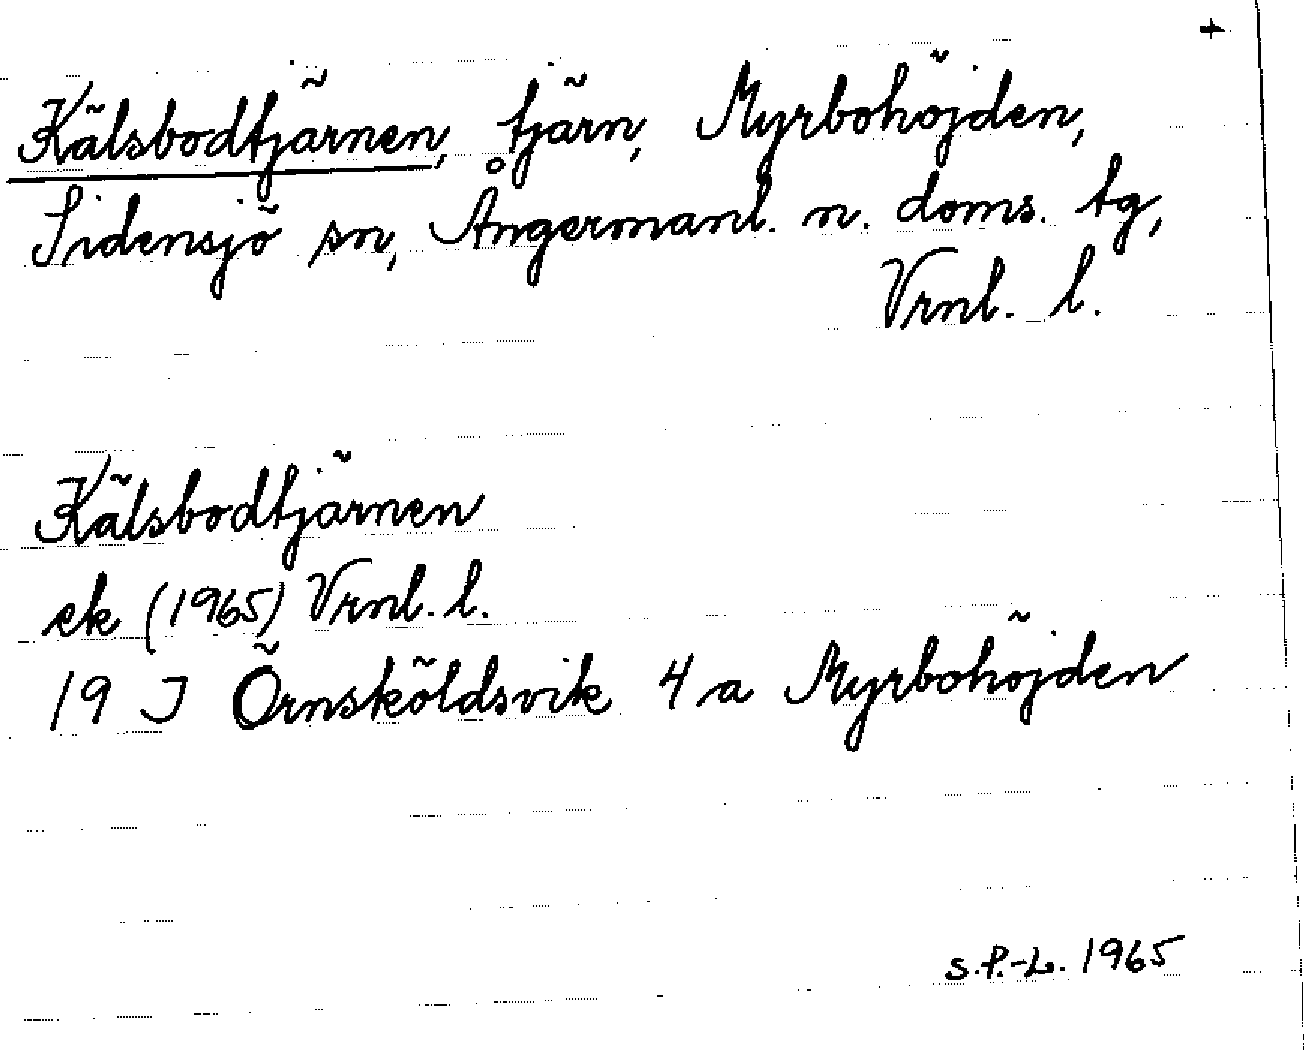 +
Kälsbodtjärnen, tjärn, Myrbohöjden,
Sidensjö sn, Ångermanl. n. doms. tg,
Vrnl. l.
Kälsbodtjärnen
ek (1965) Vrnl. l.
19 J Örnsköldsvik 4 a Myrbohöjden
S.P.-L. 1965